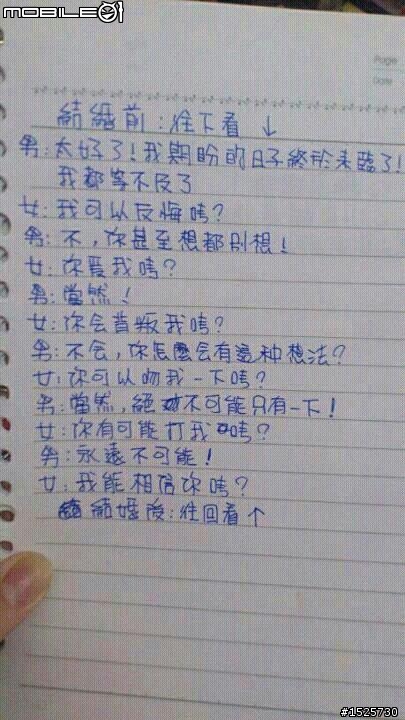 MOBILE01
Page
Date
結婚前:往下看↓
男:太好了!我期盼的日子終於來臨了!
我都等不及了
女:我可以反悔嗎?
男:不,你甚至想都別想!
女:你愛我嗎?
男:當然!
女:你会背叛我嗎?
男:不会,你怎麼会有這种想法?
女:你可以吻我一下嗎?
男:當然,絕對不可能只有一下!
女:你有可能打我嗎?
男:永遠不可能!
女:我能相信你嗎?
結婚後:往回看↑
#1525730